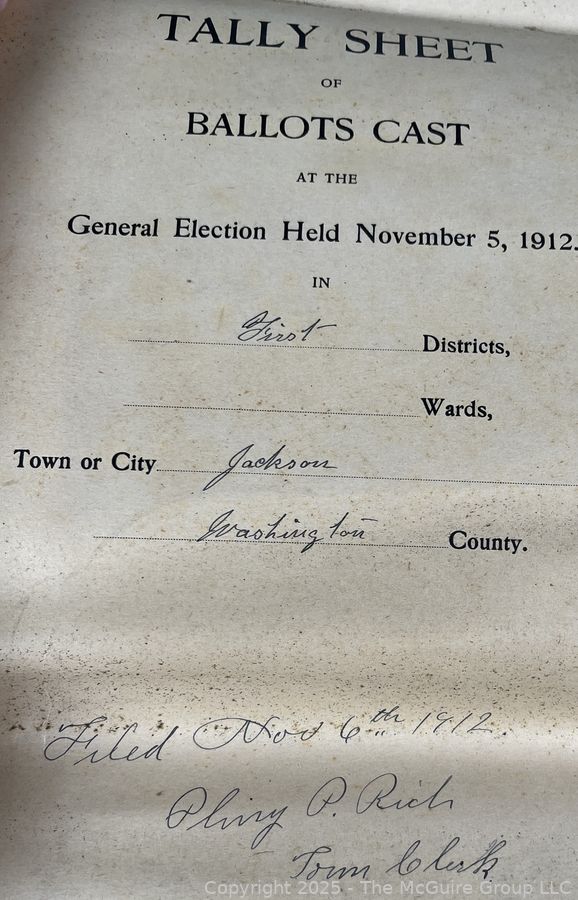 TALLY SHEET
OF
BALLOTS CAST
AT THE
General Election Held November 5, 1912.
IN
First Districts,
Wards,
Town or City Jackson
Washington County.
Filed Nov 6th 1912.
Pliny P. Rich
Town Clerk
Copyright 2025 - The McGuire Group LLC